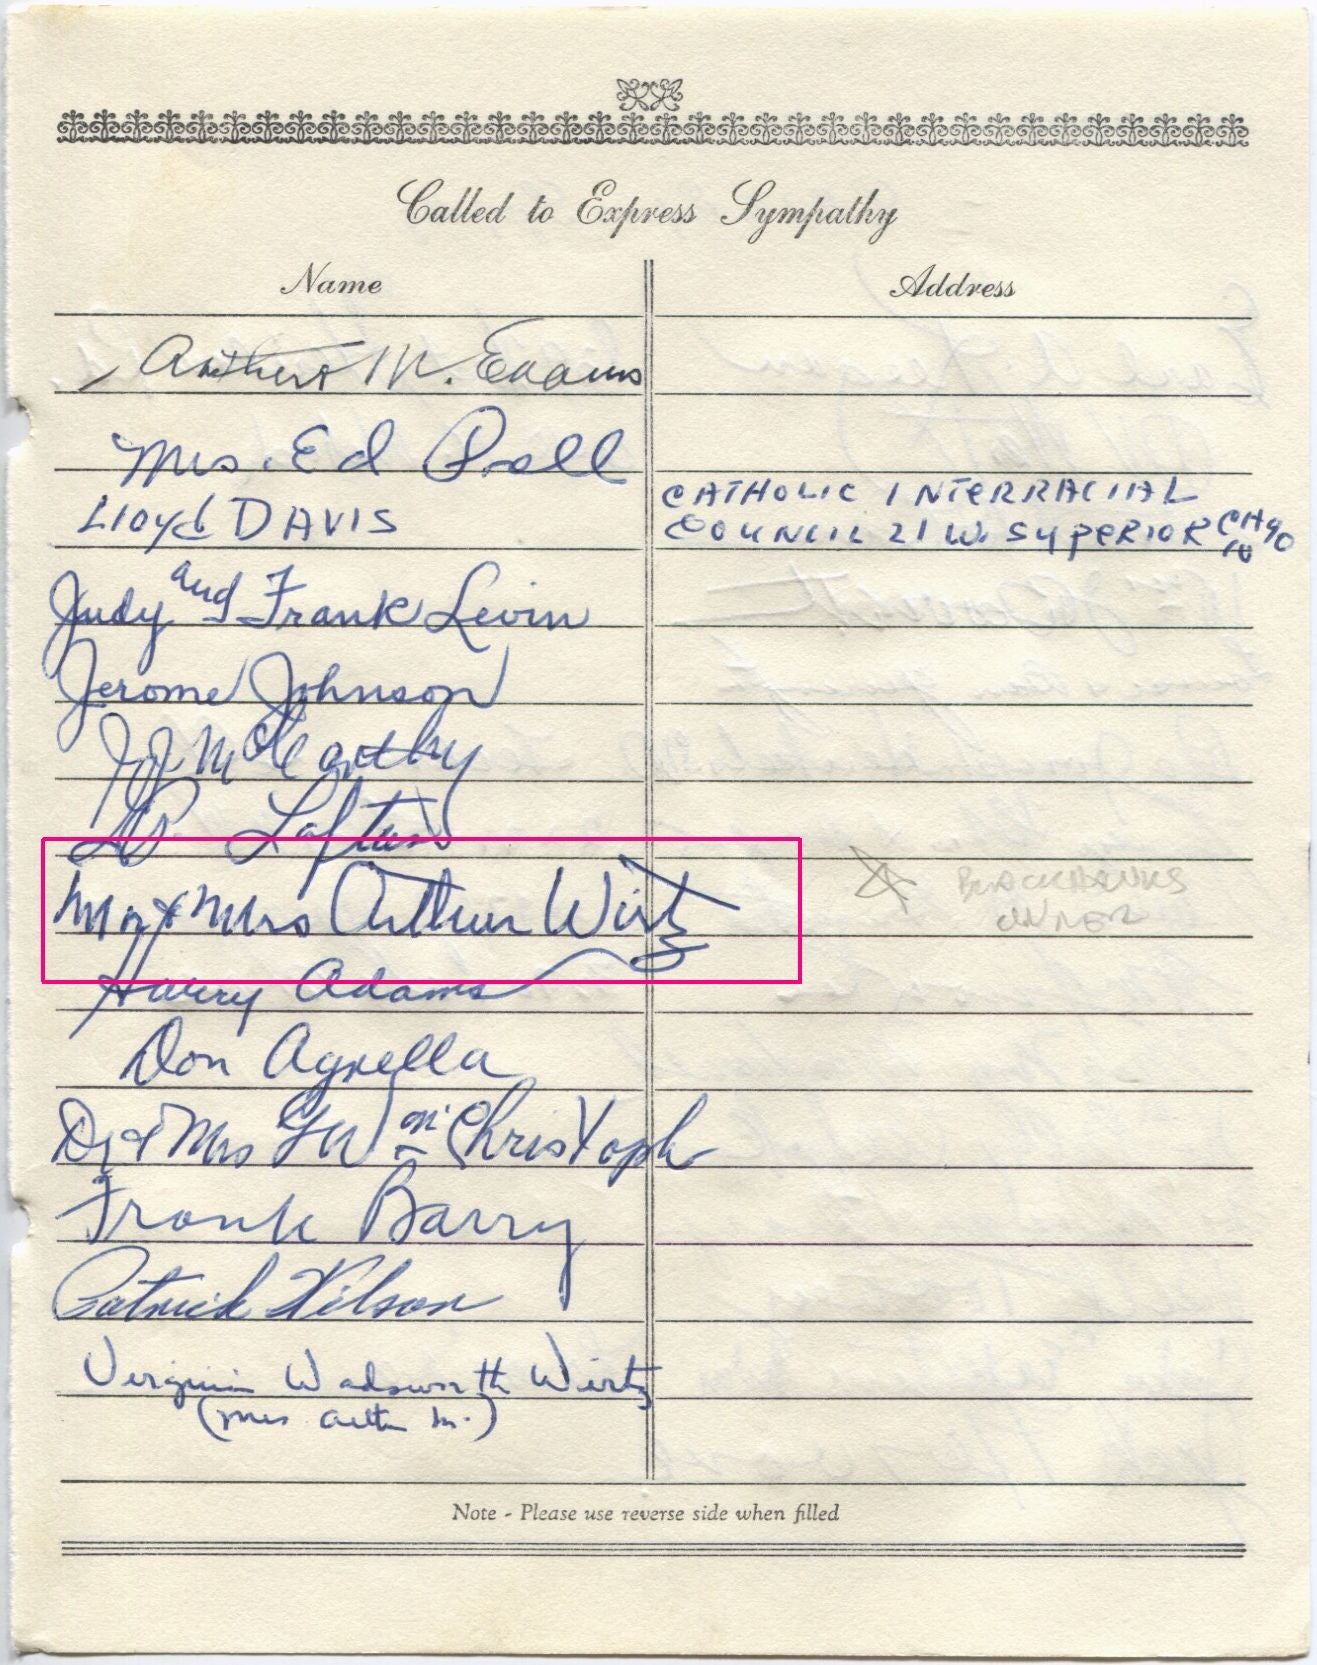 Called to Express Sympathy
Name Address
Arthur M. Evans
Mrs. Ed Prell
LLOYD DAVIS CATHOLIC INTERRACIAL
COUNCIL 21 W. SUPERIOR CHGO
10
Judy and Frank Levin
Jerome Johnson
JJ McCarthy
Loftus
Mr & Mrs Arthur Wirtz BLACKHAWKS
OWNER
Harry Adams
Don Agrella
Dr & Mrs Christoph
Frank Barry
Patrick Wilson
Virginia Wadsworth Wirtz
(Mrs Arthur M.)
Note - Please use reverse side when filled